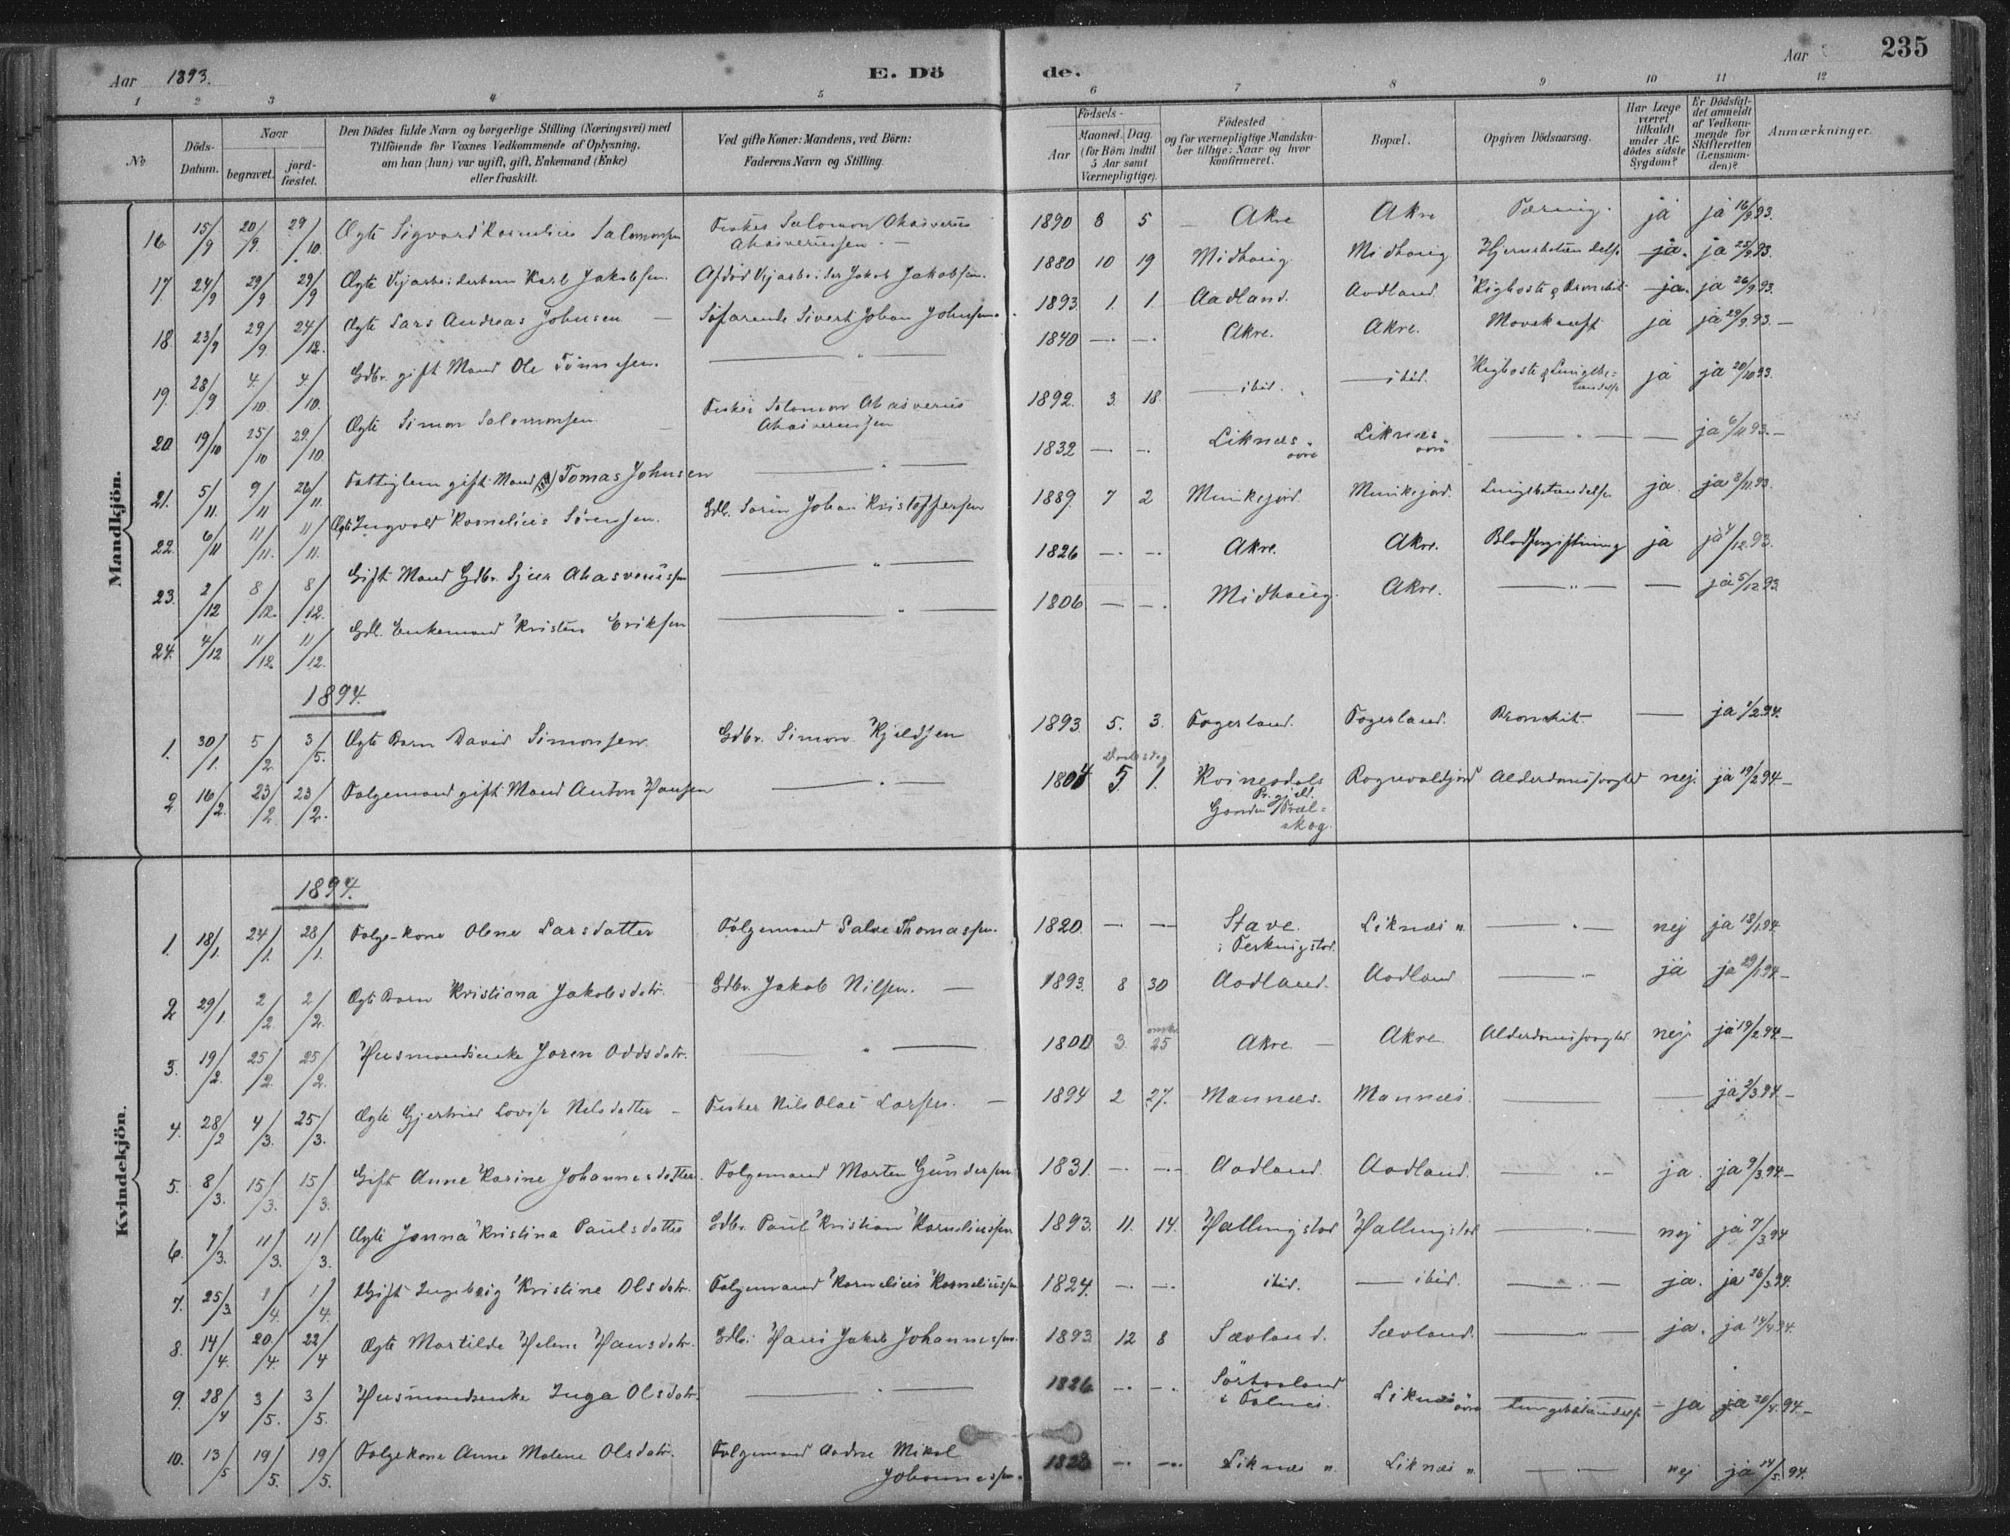 Aar 1893. E. Dö de. Aar 235
1 2 3 4 5 6 7 8 9 10 11 12
No
Döds-Datum.
Naar
begravet.
jord-fæstet.
Den Dödes fulde Navn og borgerlige Stilling (Næringsvei) med
Tilföiende for Voxnes Vedkommende af Oplysning,
om han (hun) var ugift, gift, Enkemand (Enke)
eller fraskilt.
Ved gifte Koner: Mandens, ved Börn:
Faderens Navn og Stilling.
Födsels-
Aar
Maaned. Dag.
(for Börn indtil
5 Aar samt
Værnepligtige).
Födested
og for værnepligtige Mandska-
ber tillige: Naar og hvor
konfirmeret.
Bopæl.
Opgiven Dödsaarsag.
Har Læge
været
tilkaldt
under Af-
dödes sidste
Sygdom?
Er Dödsfal-
det anmeldt
af Vedkom-
mende for
Skifteretten
(Lensman-
den)?
Anmærkninger.
Mandkjön.
16 15/9 20/9. 29/10. Ægte Sigvard Kornelius Salomonsen Fisker Salomon Ahasverus Ahasverussen. — 1890 8 5 — Akre Akre Tæring. ja ja 16/9 93.
17 24/9 29/9 29/9 Ægte Vejarbeiderbarn Karl Jakobsen. Afdød Vejarbeider Jakob Jakobsen. 1880 10 19 Midhaug Midhaug Hjernebetændelse ja. ja 25/9 93.
18 23/9 29/9. 24/12. Ægte Lars Andreas Johnsen — Söfarende Sivert Johan Johnsen. 1893. 1. 1. Aadland. Aadland. Kighoste & Bronchit ja. ja 26/9 93.
19 28/9 4/10. 4/10. Gdbr. gift Mand Ole Tönnesen. — " — 1840 —. —. Akre. Akre. Mavekræft ja ja 29/9. 93. —
20 19/10 25/10 29./10. Ægte Simon Salomonsen — Fisker Salomon Ahasverus Ahasverussen 1892. 3. 18. — ibid. — ibid. Kighoste & Lungebe-tændelse ja ja 20/10 93.
21. 5/11. 9/11 26/11. Fattiglem gift Mand Tomas Johnsen — " — 1832 — —. Liknæs övre Liknæs övre — " — — ja 6/11 93. —
22. 6/11 11/11. 11/11. Ægte Ingvald Kornelius Sörensen. Gdb. Sörin Johan Kristoffersen 1889. 7 2 Munkejord. Munkejord. Lungebetændelse ja. ja 8/11 93.
23. 2/12 8/12. 8/12. Gift Mand Gdbr. Sjur Ahasverussen — " — 1826 —. —. Akre. Akre. Blodforgiftning ja ja 4/12. 93.
24. 4/12 11/12. 11/12. Gdb. Enkemand Kristen Eriksen — " — 1806 — —. Midhaug. Akre. — " — — ja 5/12 93.
1894.
1. 30/1. 5/2. 3/5. Ægte Barn David Simonsen Gdbr. Simon Kjeldsen 1893. 5. 3. Fagerland. Fagerland. Bronchit. — ja 1/2 94.
2 16/2. 23/2. 23/2. Folgemand gift Mand Anton Hansen — " — 1804 5 1. Kvinesdals Pr.gjeld. Gaarden Træl-skog. Rognvaldjord Alderdomssvaghed nej. ja 19/2 94. —
Kvindekjön.
1894.
1. 18/1. 24/1. 28/1. Folge-kone Olene Larsdatter Folgemand Salve Thomassen. 1820. — — Stave. i Ferkingstad. Liknæs n. — " — nej ja 18/1. 94
2 29/1. 2/2. 2/2. Ægte Barn Kristiana Jakobsdatr. Gdbr. Jakob Nilsen. — 1893. 8 30 Aadland. Aadland — " — ja ja 29/1. 94. —
3. 19/2. 25/2. 25/2. Husmandsenke Joren Oddsdatr. — " — 1800 3. omkr 25 Akre — Akre Alderdomssvaghed nej. ja 19/2 94. —
4. 28/2 4/3. 25/3. Ægte Gjertrud Lovise Nilsdatter — Fisker Nils Olai Larsen. — 1894 2 27. Mannæs. Mannæs. — — ja 2/3. 94. —
5. 8/3. 15/3. 15/3. Gift Anne Karine Johannesdatter. Folgemand Morten Gundersen 1831. —. —. Aadland. Aadland. — " — ja. ja 9/3. 94. —
6. 7/3. 11/3. 11/3. Ægte Janna Kristina Paulsdatter Gdbr. Paul Kristian Korneliussen 1893. 11. 14. Hallingstad Hallingstad — " — nej ja 7/3. 94
7. 25/3. 1/4. 1/4. Gift Ingeborg Kristine Olsdatr. Folgemand Kornelius Korneliussen 1824. —. —. ibid. — ibid. — " — ja. ja 26/3. 94.
8. 14/4. 20/4. 22/4 Ægte Martilde Helene Hansdatr. Gdb. Hans Jakob Johannessen. 1893 12 8 Sævland. Sævland. — " — ja. ja 14/4. 94.
9. 28/4 3/5. 3/5. Husmandsenke Inga Olsdatr. — " — 1826 —. —. Sörhaaland i Falnes. Liknæs övre Lungebetændelse — ja ja 28/4. 94. —
10. 13/5 19/5. 19/5. Folgekone Anne Malene Olsdatr. Folgemand Andre Mikal Johannessen. 1828 —. —. Liknæs n. Liknæs n. — " — nej ja 14/5. 94.